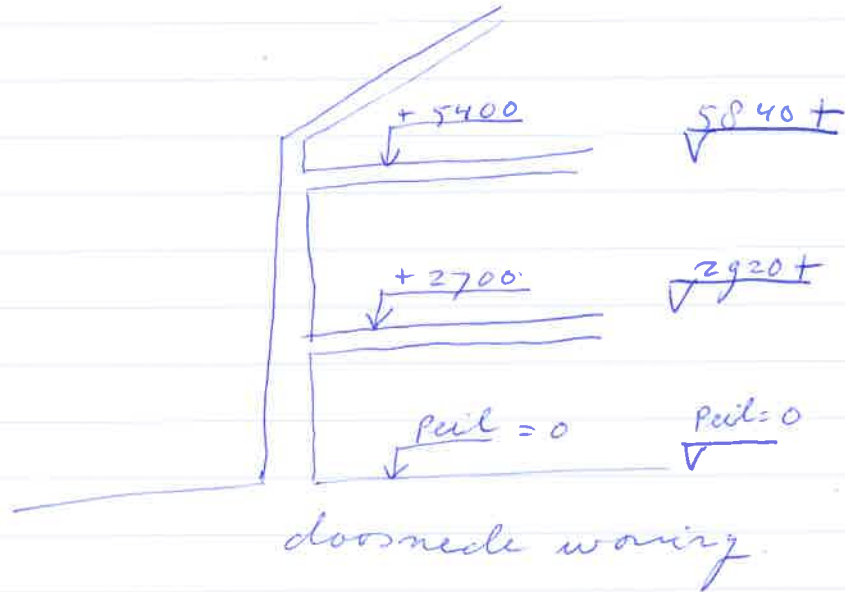 + 5400 5840 +
+ 2700 2920 +
Peil = 0 Peil = 0
doorsnede woning